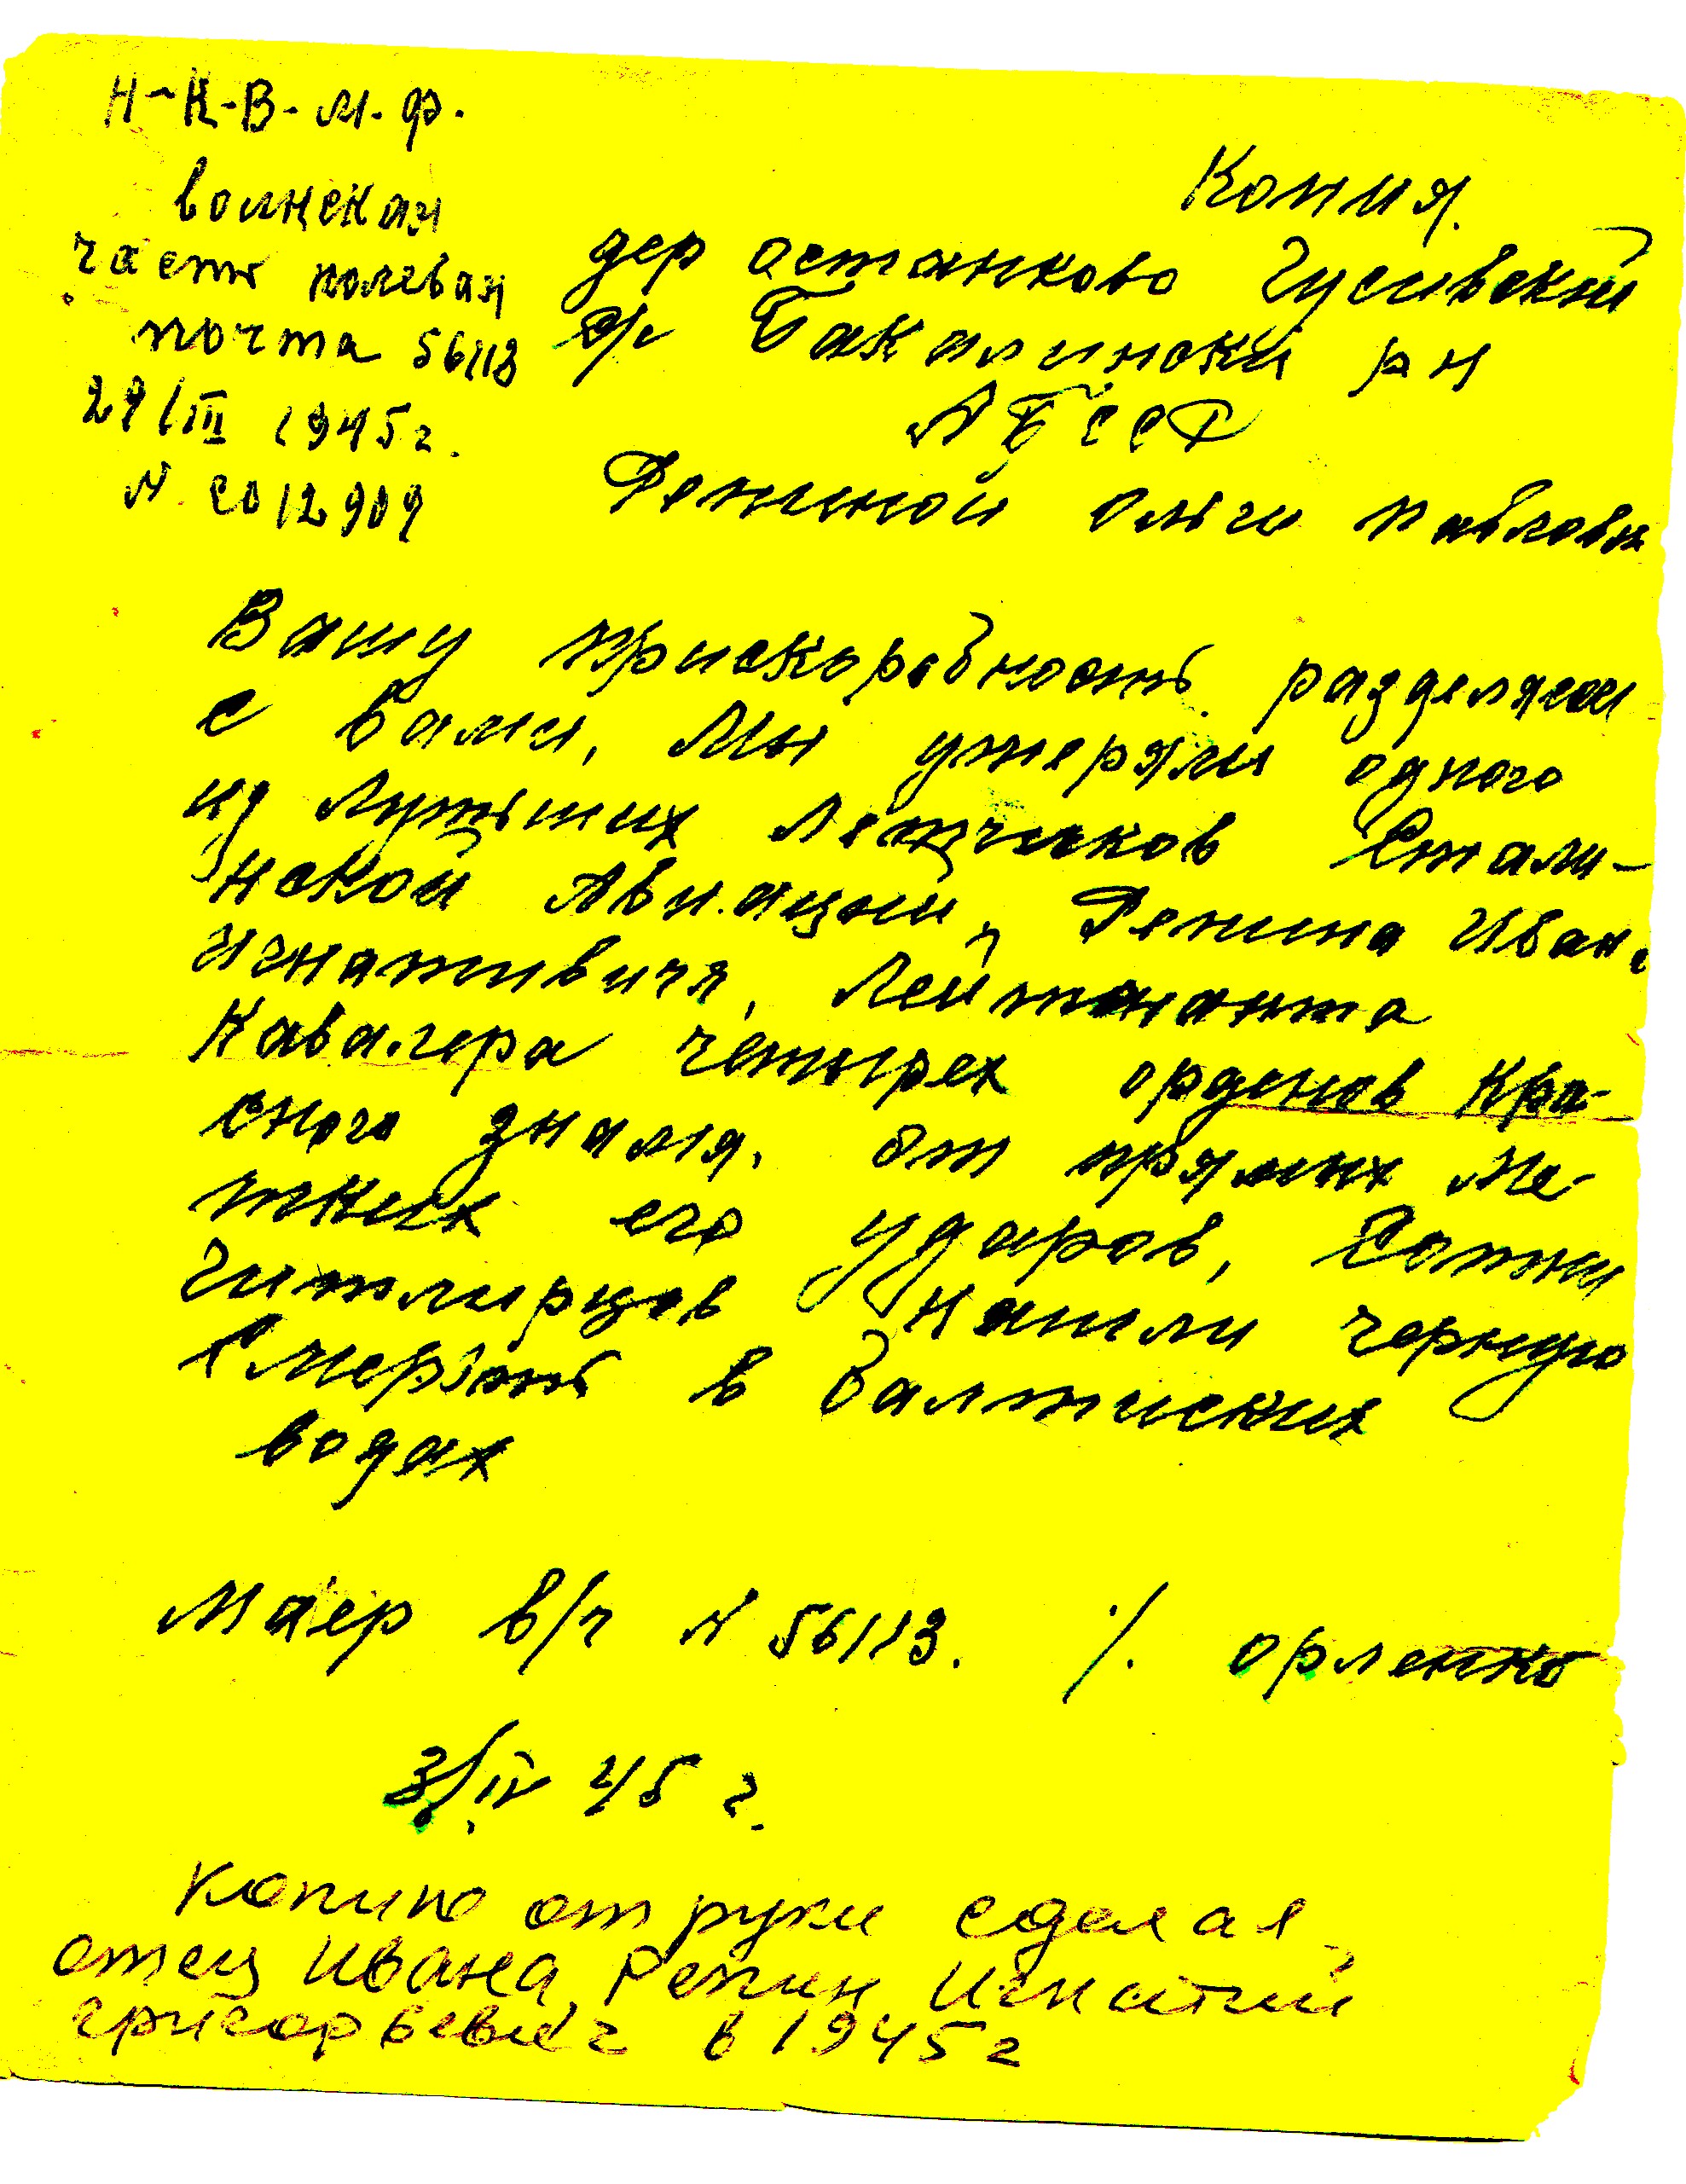 Н-К-В-М.Ф.
воинская
часть полевая
почта 56113
29/III 1945 г.
N. 2012909
Копия.
дер останково Гусивский
с/с Бакалински р н
АБССР
Репиной Ольги павловн
Вашу прискоробность разделяем
с вами, Мы утеряли одного
из Лутьших Летчиков Стали-
нской Авиации, Репина Иван.
игнативича, Лейтенанта
Кавалера четырех орденов Кра-
сного знамя, от прямых ме-
тких его ударов, Сотни
Гитлирцов нашли черную
Смерть в балтиских
водах
маёр в/ч N 56113. /. орленко
3/IV 45 г.
Копию от руки сделал
отец Ивана Репин Игнатий
григорьевич в 1945 г